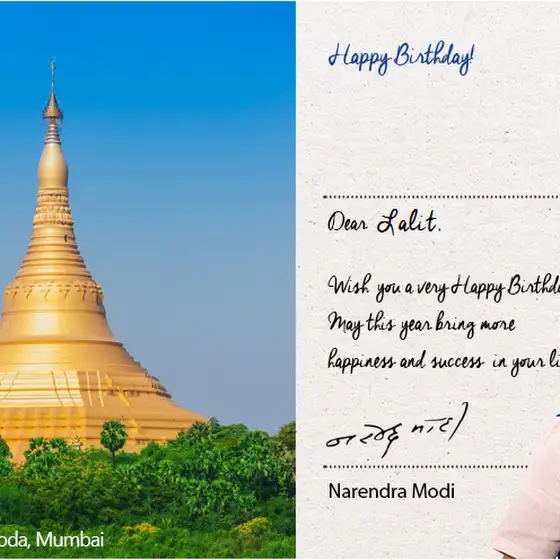 Happy Birthday!
Dear Lalit.
Wish you a very Happy Birthd
May this year bring more
happiness and success in your li
नरेन्द्र मोदी
Narendra Modi
oda, Mumbai